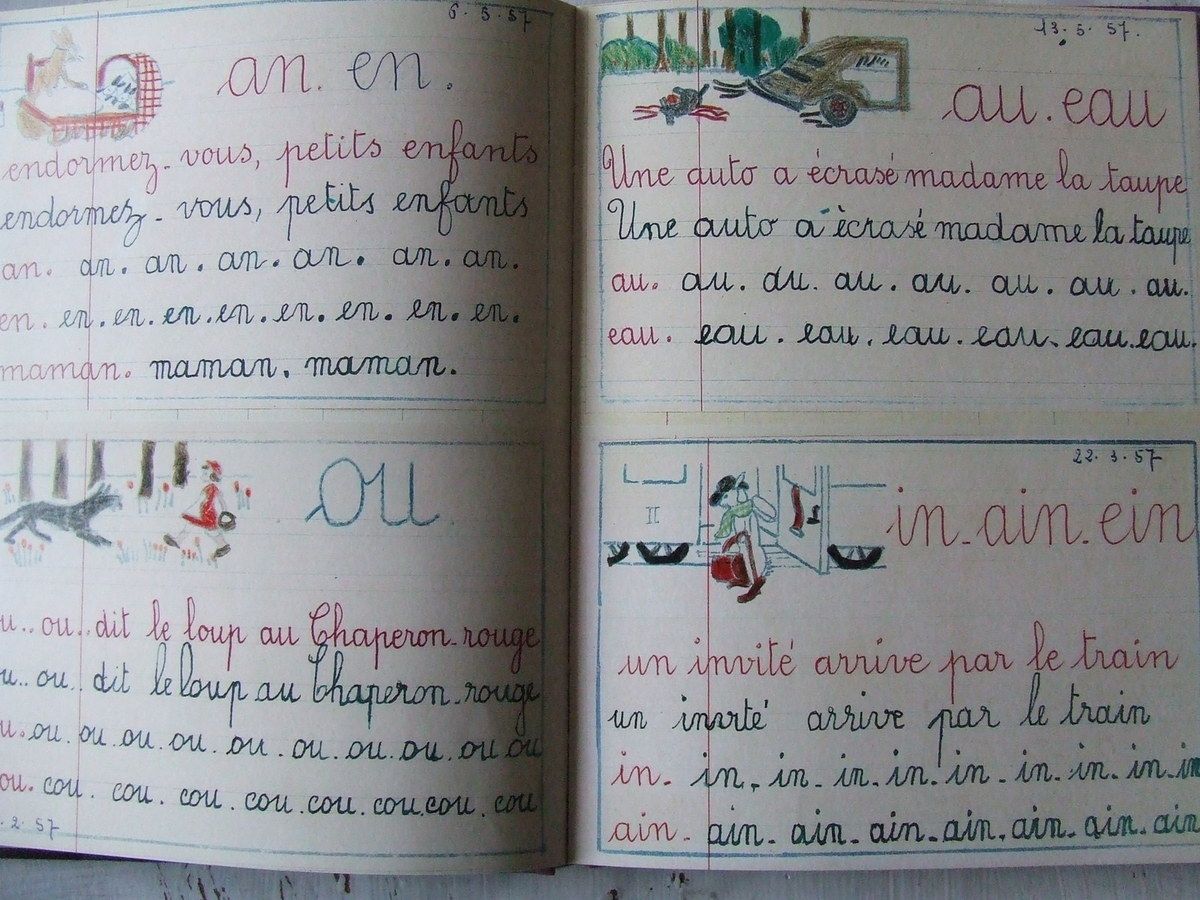 6. 5. 57
an. en.
endormez-vous, petits enfants
endormez-vous, petits enfants
an. an. an. an. an. an. an.
en. en. en. en. en. en. en. en. en.
maman. maman. maman.
ou.
ou.. ou.. dit le loup au Chaperon-rouge
ou.. ou.. dit le loup au Chaperon-rouge
ou. ou. ou. ou. ou. ou. ou. ou. ou. ou ou
cou. cou. cou. cou. cou. cou. cou. cou. cou
. 2. 57
13. 5. 57.
au. eau
Une auto a écrasé madame la taupe
Une auto a écrasé madame la taupe
au. au. au. au. au. au. au. au.
eau. eau. eau. eau. eau. eau. eau.
22. 3. 57
II
in-ain-ein
un invité arrive par le train
un invité arrive par le train
in- in- in- in- in- in- in- in- in- in
ain- ain- ain- ain- ain- ain- ain- ain